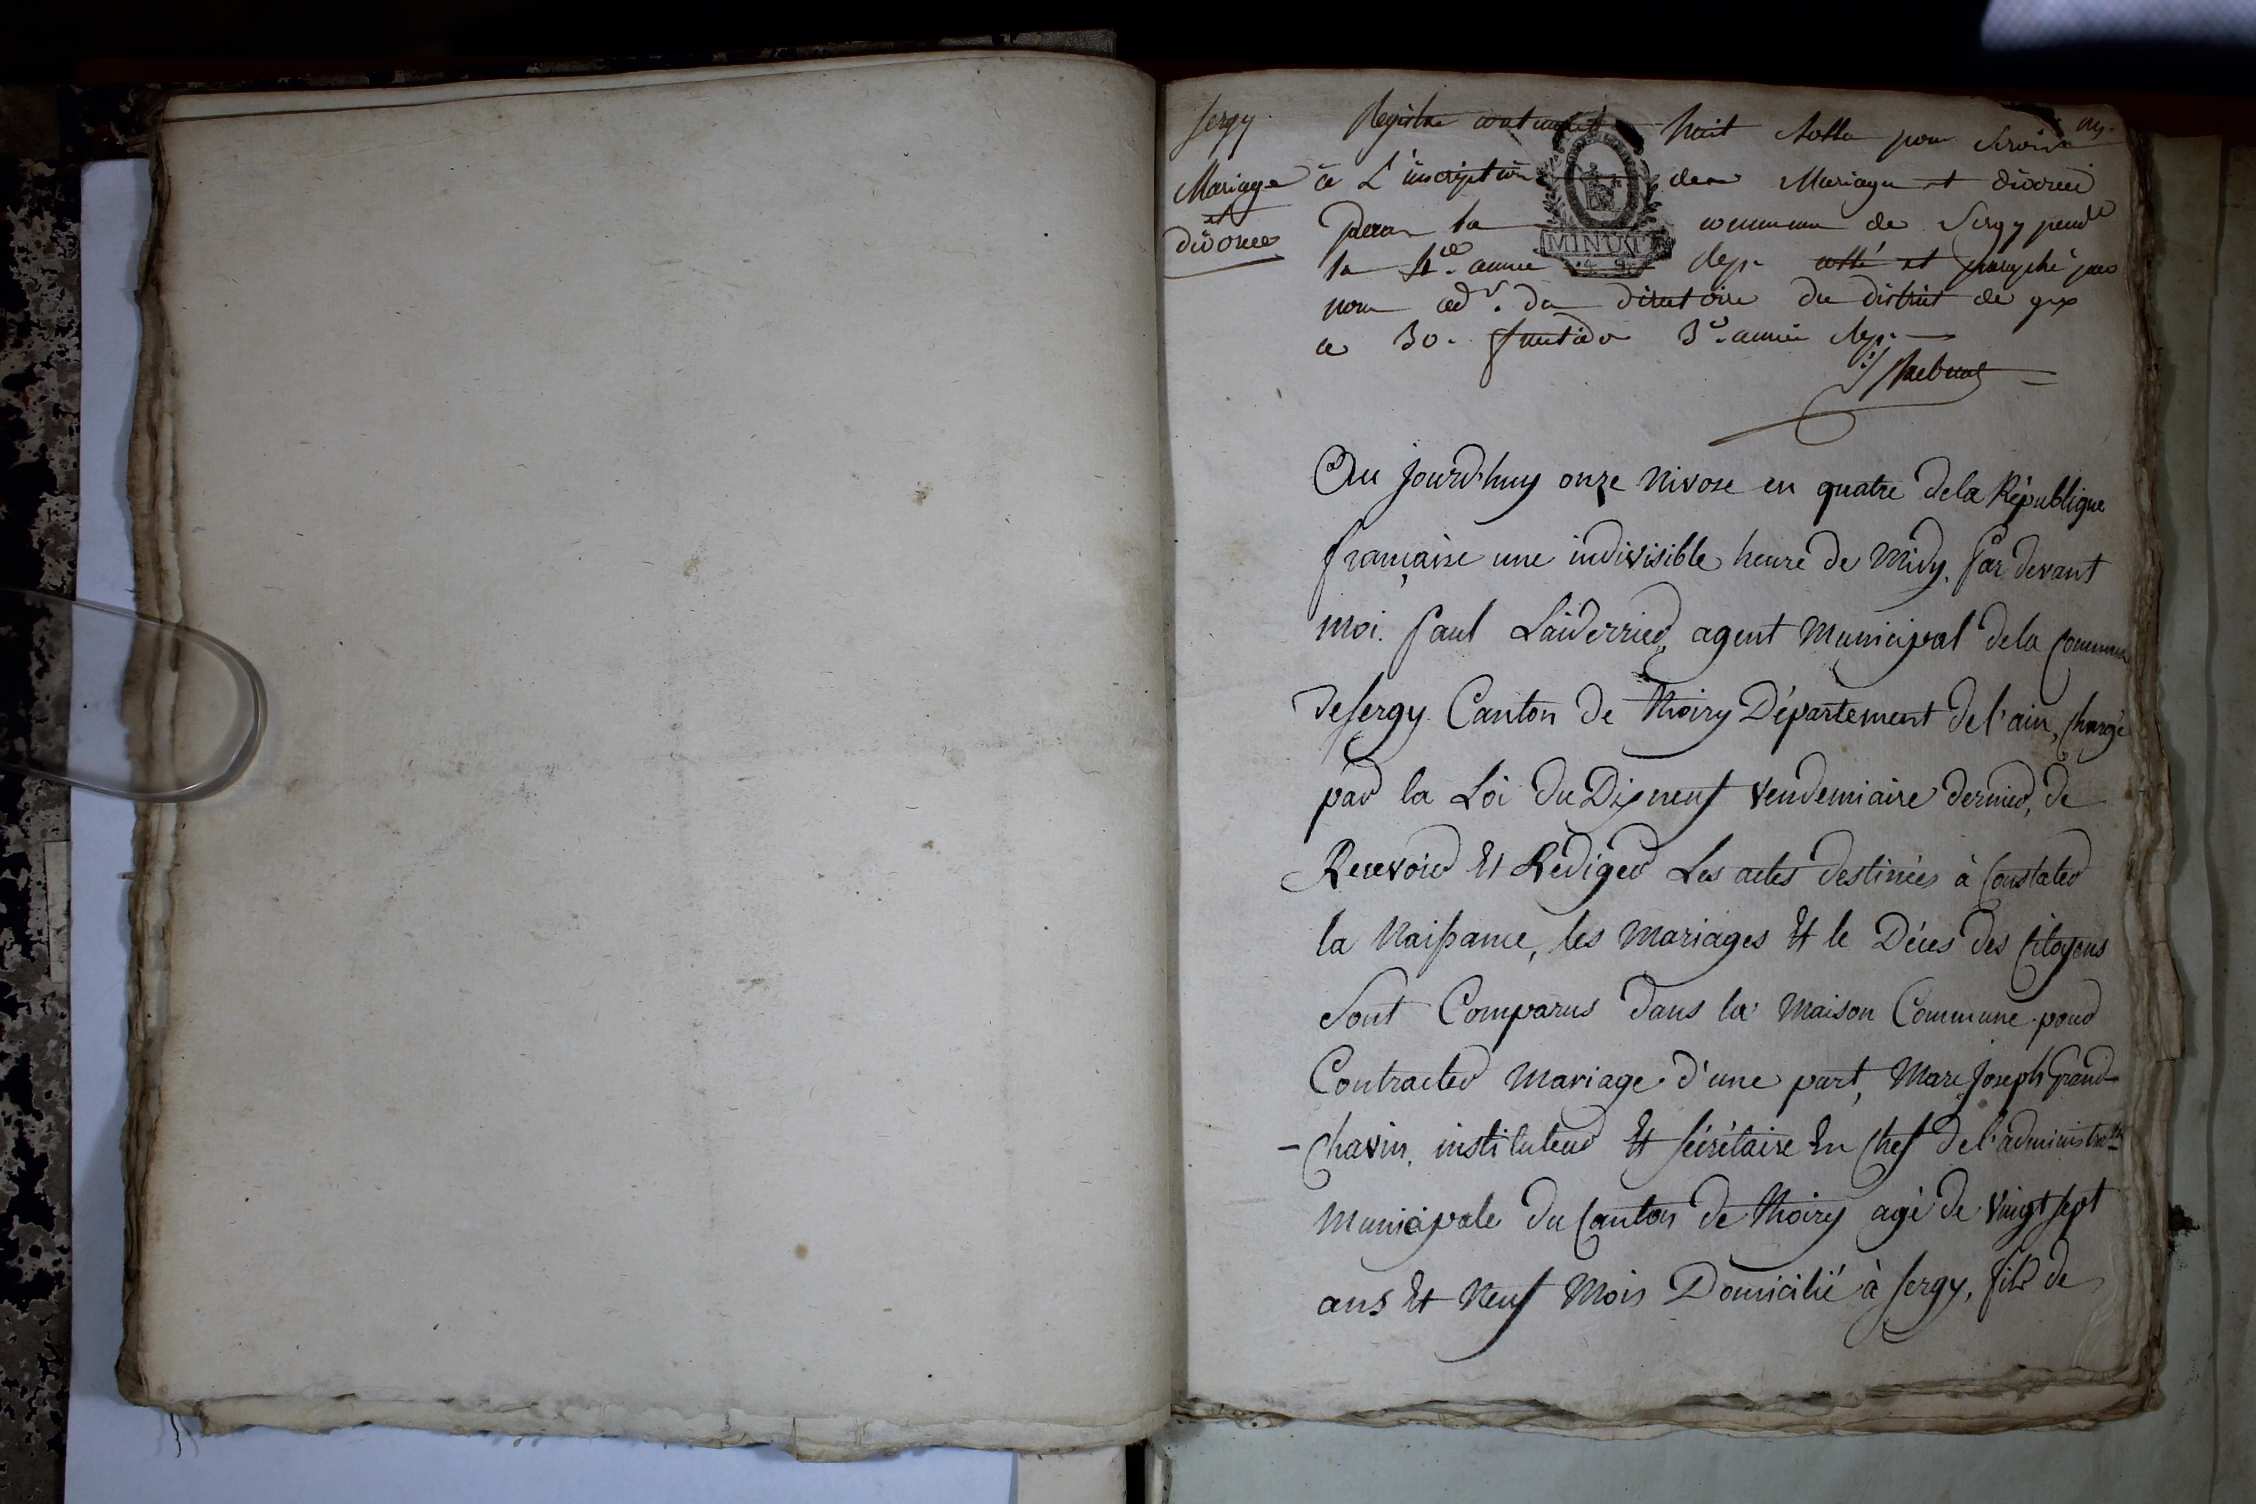 Sergy
Mariage
et
divorces
Registre contenant huit rolles pour servir
à L'inscription des Mariages et divorces
dans la commune de Sergy pend.t
la 4.e année Rep. cotté et paraphé par
nous ad.r du directoire du district de gex
ce 30. fructidor 3.e année Rep.
MINUTE
Au jourd'huy onze Nivose en quatre dela République
française une indivisible heure de Midy, Par devant
moi. Paul agent Municipal dela Commune
de Sergy Canton de Thoiry Département de l'ain, Chargé
par la Loi du Dix neuf Vendemiaire dernier, de
Recevoir Et Rédiger Les actes destinées à Constater
la Naissance, les Mariages Et le Décès des Citoyens
Sont Comparus dans la Maison Commune pour
Contracter Mariage d'une part, Marc Joseph Grand
- Chavin, instituteur Et Sécrétaire En Chef de l'administra.on
Municipale du Canton de Thoiry agé de Vingt sept
ans Et Neuf Mois Domicilié à Sergy, fils de